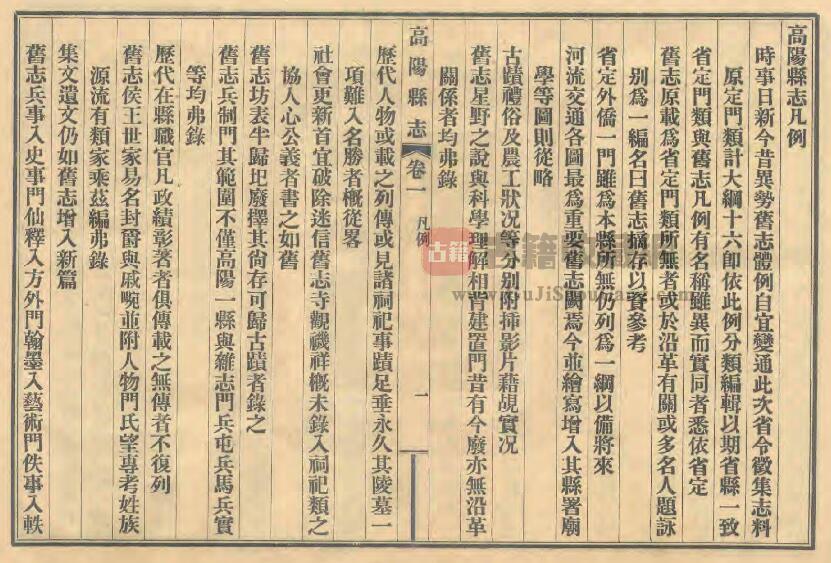 高陽縣志凡例
時事日新今昔異勢舊志體例自宜變通此次省令徵集志料
原定門類計大綱十六卽依此例分類編輯以期省縣一致
省定門類與舊志凡例有名稱雖異而實同者悉依省定
舊志原載爲省定門類所無者或於沿革有關或多名人題詠
别爲一編名曰舊志摘存以資參考
省定外僑一門雖爲本縣所無仍列爲一綱以備將來
河流交通各圖最爲重要舊志闕焉今並繪寫增入其縣署廟
學等圖則從略
古蹟禮俗及農工狀况等分别附揷影片藉覘實况
舊志星野之說與科學理解相背建置門昔有今廢亦無沿革
關係者均弗錄
高陽縣志
卷一
凡例
一
歷代人物或載之列傳或見諸祠祀事蹟足垂永久其陵墓一
項難入名勝者槪從畧
社會更新首宜破除迷信舊志寺觀禨祥槪未錄入祠祀類之
協人心公義者書之如舊
舊志坊表半歸圮廢擇其尙存可歸古蹟者錄之
舊志兵制門其範圍不僅高陽一縣與雜志門兵屯兵馬兵實
等均弗錄
歷代在縣職官凡政績彰著者俱傳載之無傳者不復列
舊志侯王世家易名封爵與戚畹並附人物門氏望專考姓族
源流有類家乘茲編弗錄
集文遺文仍如舊志增入新篇
舊志兵事入史事門仙釋入方外門翰墨入藝術門佚事入軼
古籍
www.GuJiShuFang.com